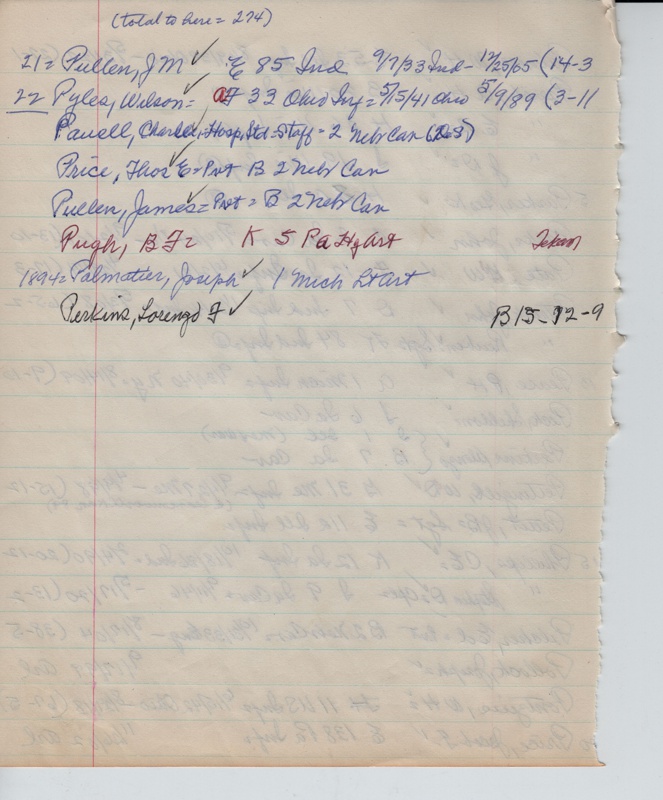 (Total to here = 274)
21 = Pullen, J M ✓ E 85 Ind 9/7/33 Ind - 12/25/65 (14-3
22 Pyles, Wilson = F 33 Ohio Inf = 5/15/41 Ohio 5/9/89 (3-11
Powell, Charles, Hosp. Std. Staff = 2 Neb Cav
Price, Thos E = Pvt B 2 Neb Cav
Pullen, James = Pvt = B 2 Neb Cav
Pugh, B F = K 5 Pa Hy Art
1894 = Palmatier, Joseph ✓ 1 Mich Lt Art
Perkins, Lorenzo F ✓ B15-12-9